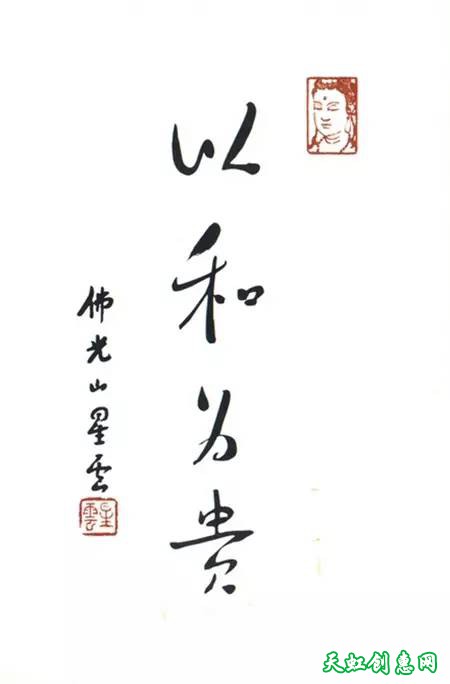 以和为贵
佛光山星雲
星雲
天虹创意网